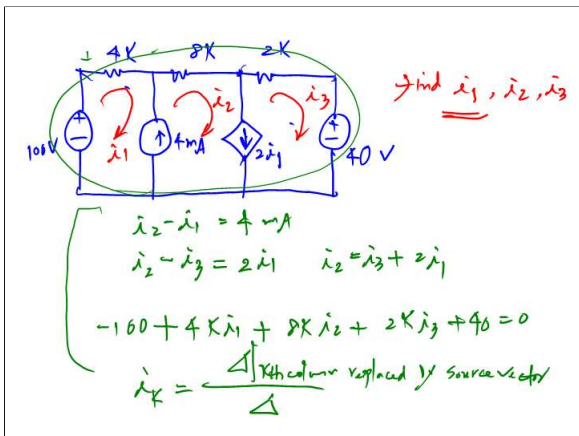 4K 8K 2K
100V i1 4mA i2 2i1 i3 40 V
Find i1, i2, i3
i2 - i1 = 4 mA
i2 - i3 = 2i1 i2 = i3 + 2i1
-100 + 4Ki1 + 8Ki2 + 2Ki3 + 40 = 0
iK = Δ|Kth column replaced by source vector / Δ